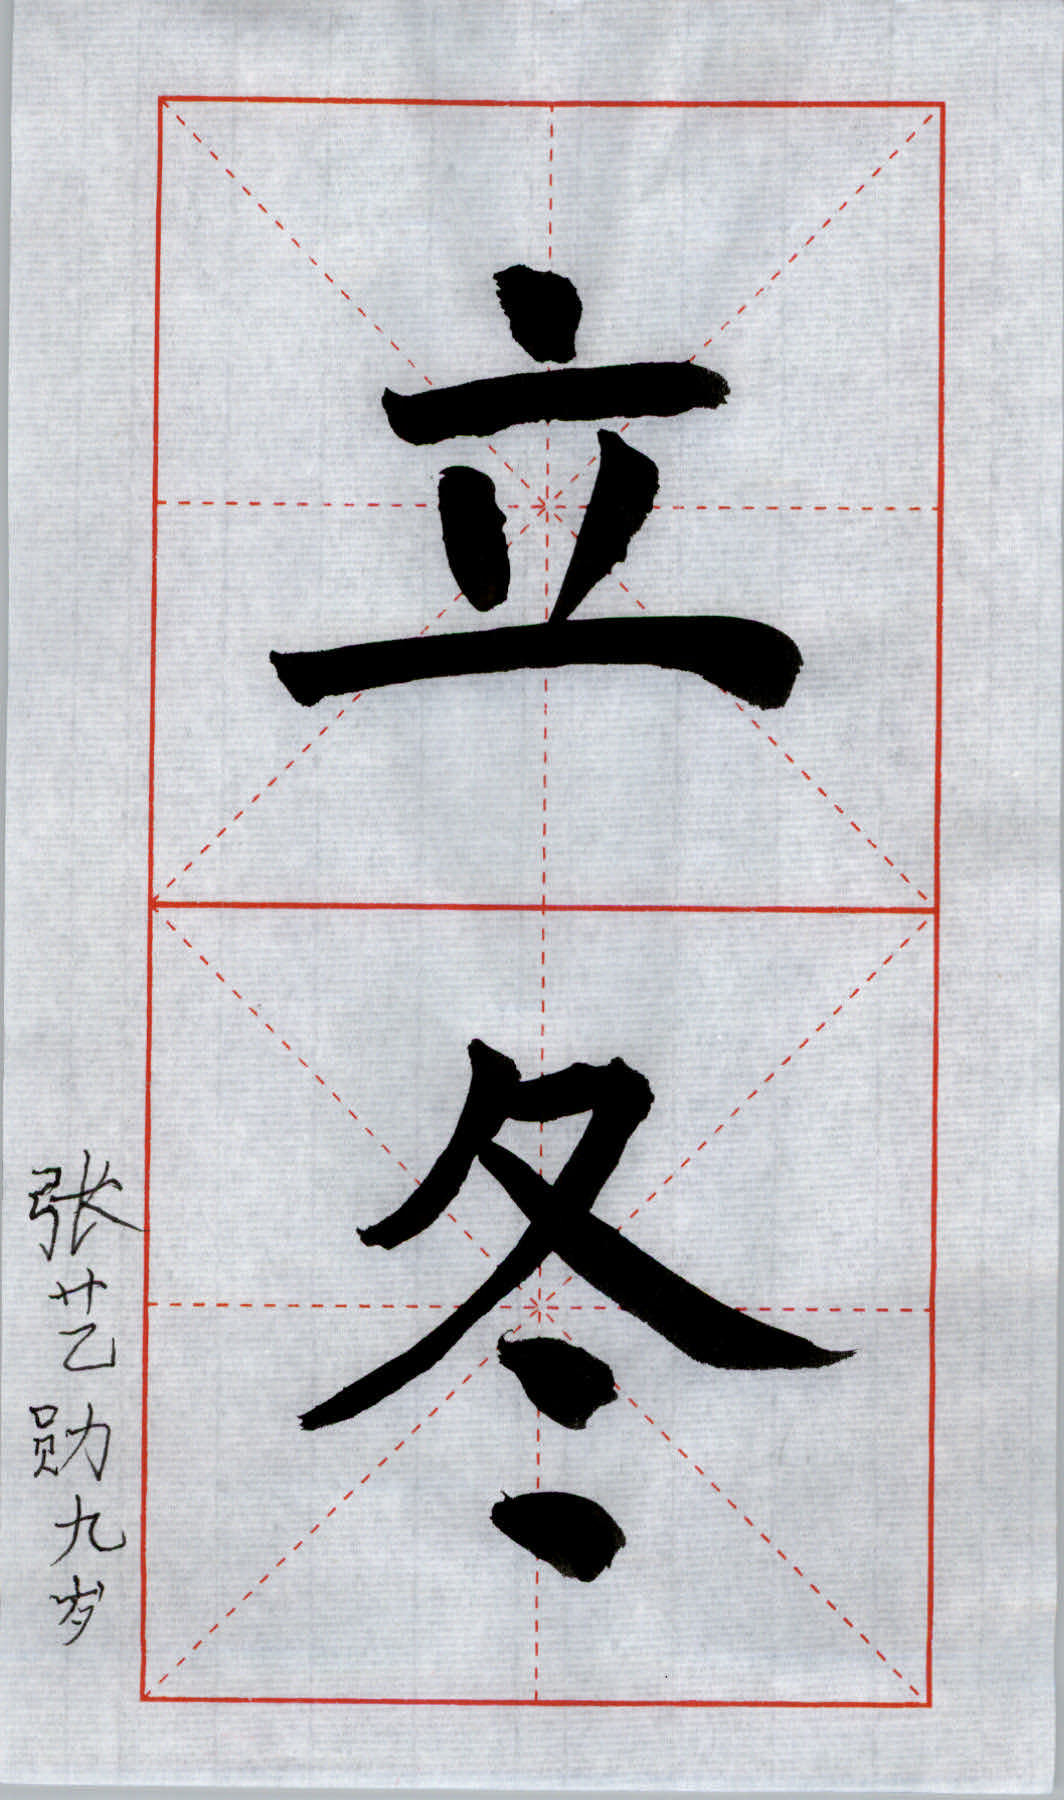 立冬
张艺勋九岁